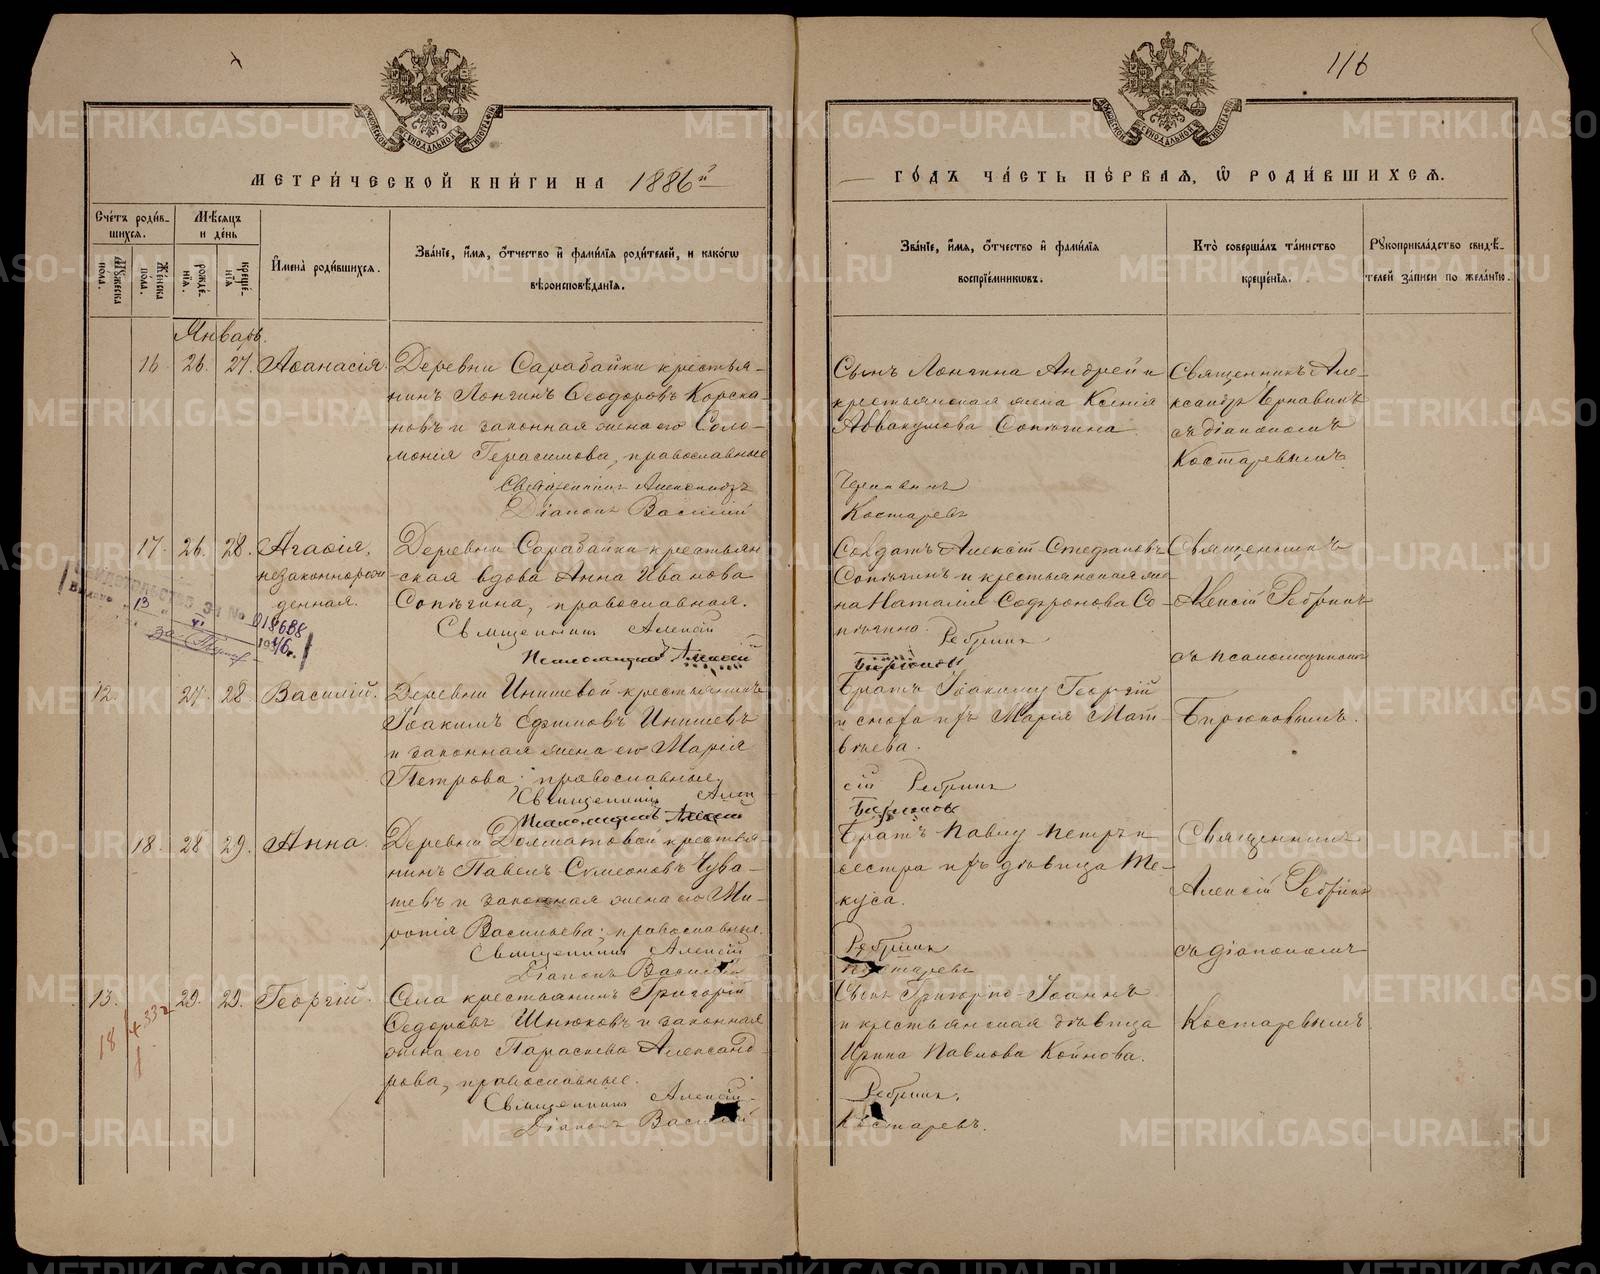 116
МЕТРИЧЕСКОЙ КНИГИ НА 1886й
ГОДЪ ЧАСТЬ ПЕРВАЯ, Ѡ РОДИВШИХСЯ.
Счетъ родив-
шихся.
Мужеска пола.
Женска пола.
Мѣсяцъ
и день
рожде-
нія.
креще-
нія
Имена родившихся.
Званіе, имя, отчество и фамилія родителей, и какогѡ
вѣроисповѣданія.
Званіе, имя, отчество и фамилія
воспріемникѡвъ.
Кто совершалъ таинство
крещенія.
Рукоприкладство свидѣ-
телей записи по желанію.
Январь.
16 26. 27. Аѳанасія.
Деревни Сарабайки крестья-
нинъ Лонгинъ Ѳеодоровъ Корска-
новъ и законная жена его Соло-
монія Герасимова, православные
Священникъ Александръ
Діаконъ Василій
Сынъ Лонгина Андрей и
крестьянская жена Ксенія
Аввакумова Сопѣгина
Чернавинъ
Костаревъ
Священникъ Але-
ксандръ Чернавинъ
съ діакономъ
Костаревымъ
17. 26. 28. Агаѳія,
незаконнорож-
денная.
Деревни Сарабайки крестьян
-ская вдова Анна Иванова
Сопѣгина, православная.
Священникъ Алексій
Псаломщикъ Алексій
Солдатъ Алексій Стефановъ
Сопѣгинъ и крестьянская же-
на Наталія Софронова Со-
пѣгина.
Ребринъ
Бирюковъ
Священникъ
Алексій Ребринъ
съ псаломщикомъ
Бирюковымъ.
018688
1946 г.
12. 27. 28. Василій.
Деревни Инишевой крестьянинъ
Іоакимъ Ефимовъ Инишевъ
и законная жена его Марія
Петрова: православные,
Священникъ Алек
Псаломщикъ Алексій
Братъ Іоакиму Георгій
и сноха ихъ Марія Мат-
вѣева.
сій Ребринъ
Бирюковъ
18. 28 29. Анна.
Деревни Долматовой крестья-
нинъ Павелъ Сѵмеоновъ Чува-
шевъ и законная жена его Ми-
ропія Васильева: православные.
Священникъ Алексій
Діаконъ Василій
Братъ Павлу Петръ и
сестра ихъ дѣвица Ѳе-
куса.
Ребринъ
Костаревъ
Священникъ
Алексій Ребринъ
съ діакономъ
Костаревымъ
13. 29. 29. Георгій.
Села крестьянинъ Григорій
Ѳедоровъ Шнюковъ и законная
жена его Параскева Александ-
рова, православные.
Священникъ Алексій
Діаконъ Василій
Сынъ Григорію Іоаннъ
и крестьянская дѣвица
Ирина Павлова Койнова.
Ребринъ.
Костаревъ.
METRIKI.GASO-URAL.RU